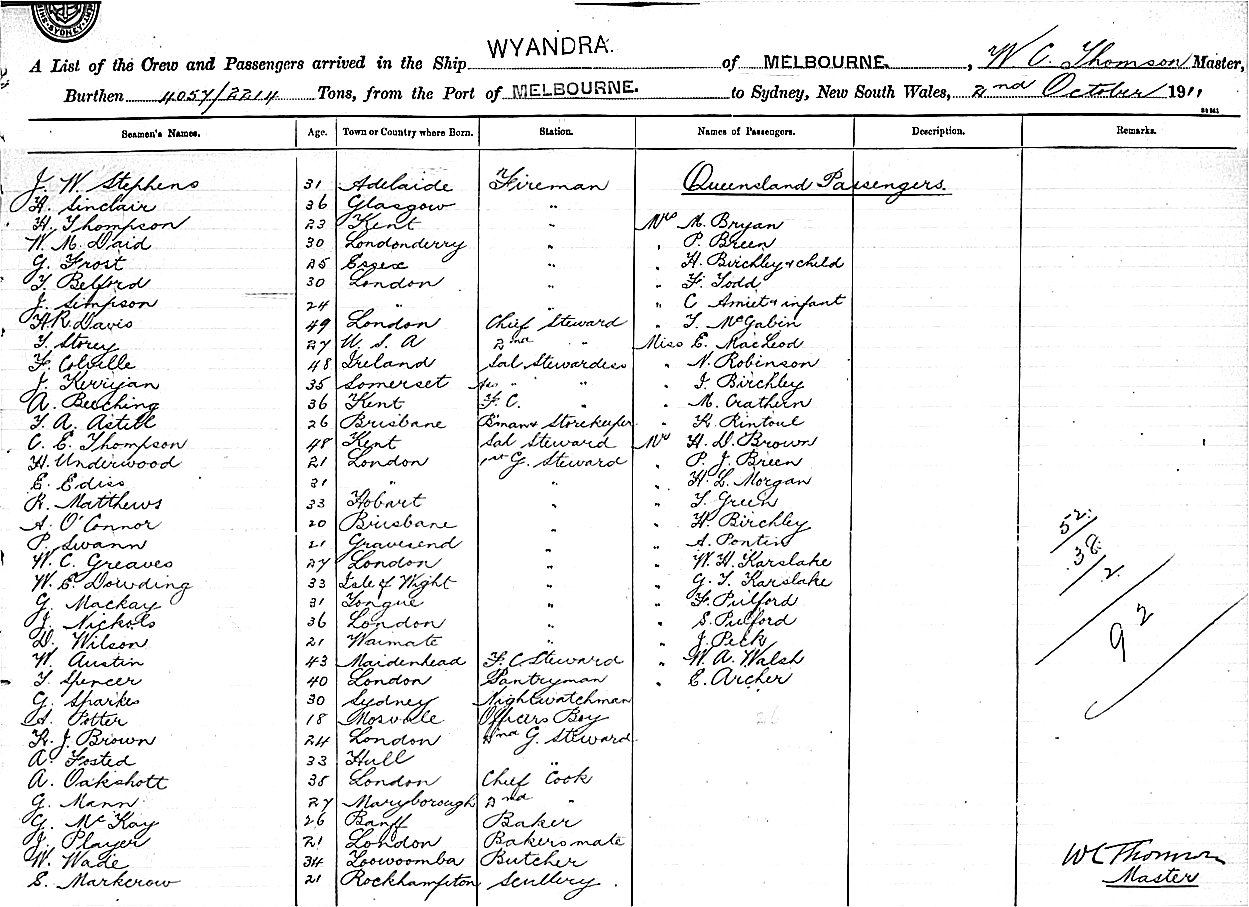 SYDNEY
WYANDRA.
A List of the Crew and Passengers arrived in the Ship WYANDRA. of MELBOURNE. , W C. Thomson Master,
Burthen 4057/2214 Tons, from the Port of MELBOURNE. to Sydney, New South Wales, 2nd October 1911
Seamen's Names. Age. Town or Country where Born. Station. Names of Passengers. Description. Remarks.
J. W. Stephens 31 Adelaide Fireman Queensland Passengers.
H. Sinclair 36 Glasgow "
H. Thompson 23 Kent " Mrs M. Bryan
W. M. Daid 30 Londonderry " " P. Breen
G. Frost 25 Essex " " H. Birchley & child
T. Belford 30 London " " F. Todd
J. Simpson 24 " " " C Amiet & infant
H.R. Davis 49 London Chief Steward " T. McGabin
T. Storey 27 U. S. A 2nd " Miss E. MacLeod
F. Colville 48 Ireland Sal Stewardess " N. Robinson
J. Kerrijan 35 Somerset " " " I. Birchley
A. Beeching 36 Kent F. C. " " M. Crathern
F. A. Astell 26 Brisbane B'man & Storekeeper " K. Rintoul
C. E. Thompson 48 Kent Sal Steward Mr H. D. Brown
H. Underwood 21 London 1st G. Steward " P. J. Breen
E. Ediss 31 " " " H. L. Morgan
R. Matthews 33 Hobart " " T. Green
A. O'Connor 20 Brisbane " " H. Birchley
P. Swann 21 Gravesend " " A. Pontin
W. C. Greaves 27 London " " W. H. Karslake
W. E. Dowding 33 Isle of Wight " " G. T. Karslake
G. Mackay 31 Tongue " " F. Pulford
J. Nichols 36 London " " S. Pulford
D. Wilson 21 Waimate " " J. Peck
W. Austin 43 Maidenhead F. C. Steward " W. A. Walsh
T. Spencer 40 London Pantryman " E. Archer
G. Sparkes 30 Sydney Nightwatchman
A. Potter 18 Mosvale Officers Boy 26
R. J. Brown 24 London 2nd G. Steward
A. Fosted 33 Hull "
A. Oakshott 38 London Chief Cook
G. Mann 27 Maryborough 2nd "
G. McKay 26 Banff Baker
J. Player 21 London Bakers mate
W. Wade 34 Toowoomba Butcher
S. Markcrow 21 Rockhampton Scullery .
52.
38.
2.
92
W C Thomson
Master